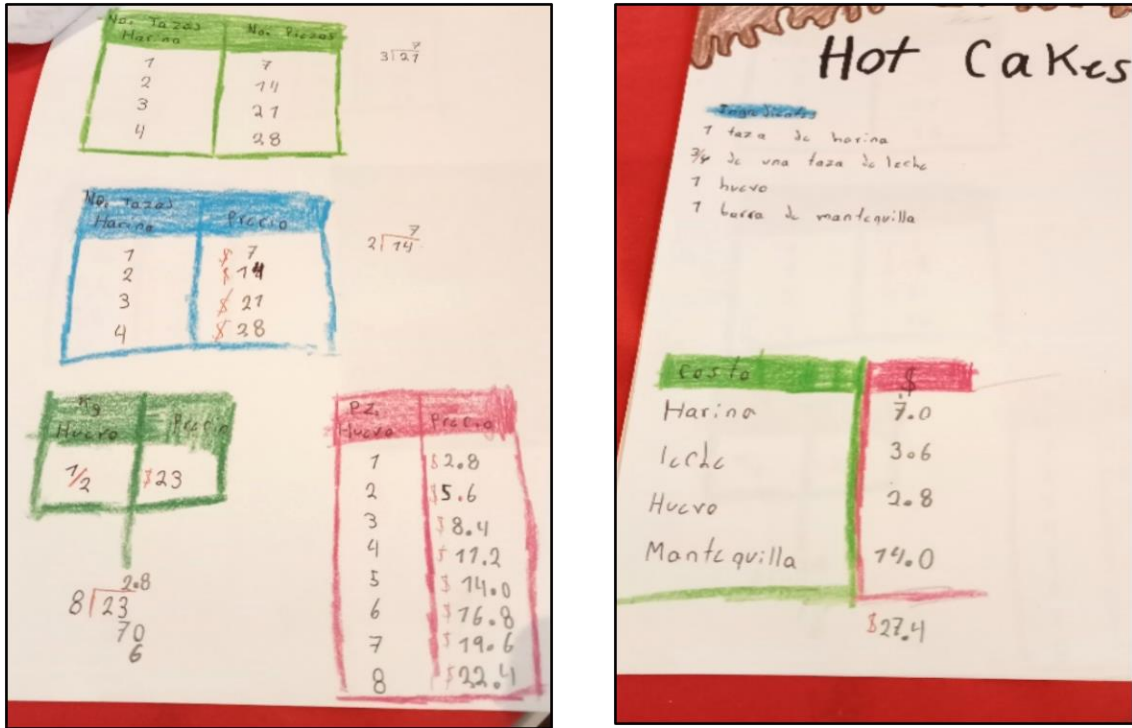 No. Tazas Harina No. Piezas
1 7
2 14
3 21
4 28
7
3 21
No. Tazas Harina Precio
1 $ 7
2 $ 14
3 $ 21
4 $ 28
7
2 14
Kg Huevo Precio
1/2 $23
2.8
8 23
70
6
PZ. Huevo Precio
1 $2.8
2 $5.6
3 $8.4
4 $11.2
5 $14.0
6 $16.8
7 $19.6
8 $22.4
Hot Cakes
Ingredientes
1 taza de harina
3/4 de una taza de leche
1 huevo
1 barra de mantequilla
Costo $
Harina 7.0
leche 3.6
Huevo 2.8
Mantequilla 14.0
$27.4